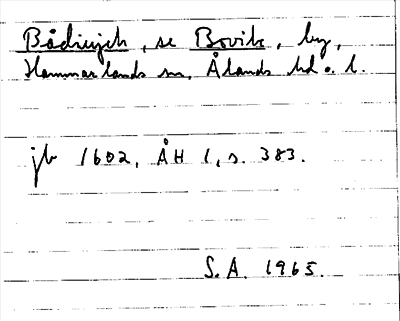 Bådiujck, se Bovik, by,
Hammarlands sn, Ålands hd o. l.
jb 1602, ÅH 1, s. 383.
S.A. 1965.